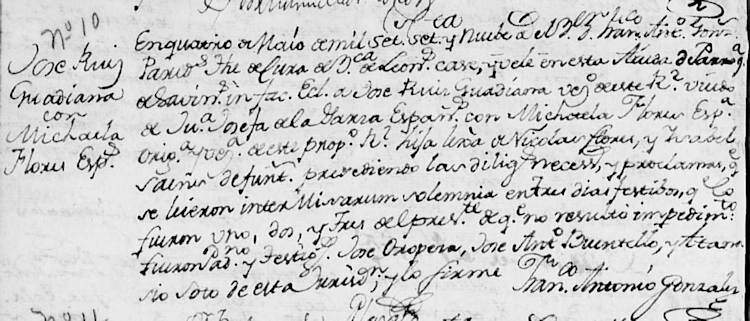 Nº 10
Jose Ruiz
Guadiana
con
Michaela
Flores Espª
En quatro de Maio de mil Set. Set.ª y Nuebe a D. Fran. Antº Gonz.
Case, y Vele en esta Aiuda de Parroqª
de in fac. Ecl. a Jose Ruiz Guadiana vezº de este Rl viudo
de Juª Josefa de la Garza Españª con Michaela Flores Espª
Origª y vezª de este propº Rl hija lexª de Nicolas Flores, y Isabel
defuntˢ precediendo las diligˢ necessˢ, y proclamas, q
se leieron inter Missarum solemnia en tres dias festibos, q
fueron uno, dos, y tres del presᵗᵉ de q.ᵉ no resulto impedimᵗᵒ
fueron Padnº y testigˢ Jose Oropeza, Jose Antº Buentello, y Atana
sio Soto de esta Jurisdn, y lo firme
Franᶜᵒ Antonio Gonzales